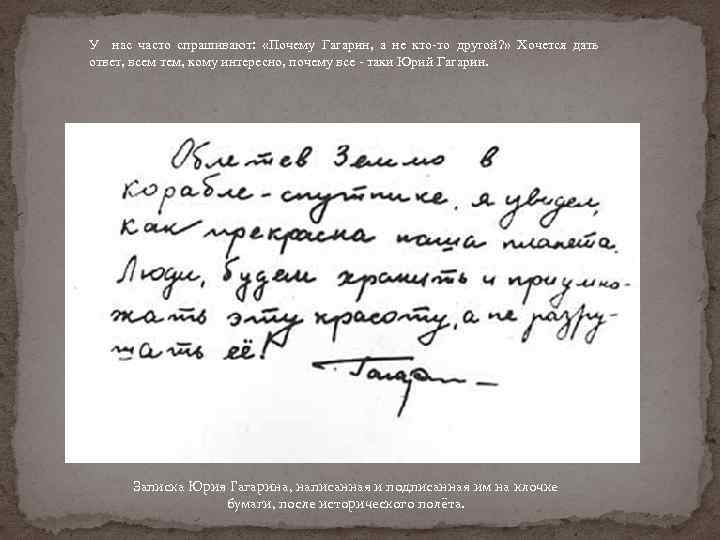 У нас часто спрашивают: «Почему Гагарин, а не кто-то другой?» Хочется дать
ответ, всем тем, кому интересно, почему все - таки Юрий Гагарин.
Облетев Землю в
корабле-спутнике, я увидел,
как прекрасна наша планета.
Люди, будем хранить и приумно-
жать эту красоту, а не разру-
шать её!
Гагарин
Записка Юрия Гагарина, написанная и подписанная им на клочке
бумаги, после исторического полёта.